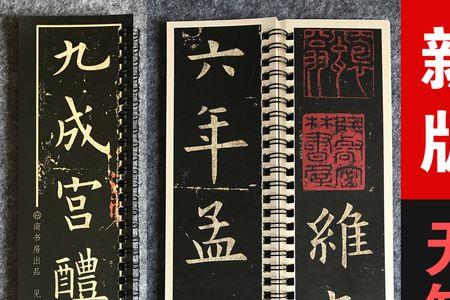 九成宫醴
南书房出品 见
維
六年孟
新版